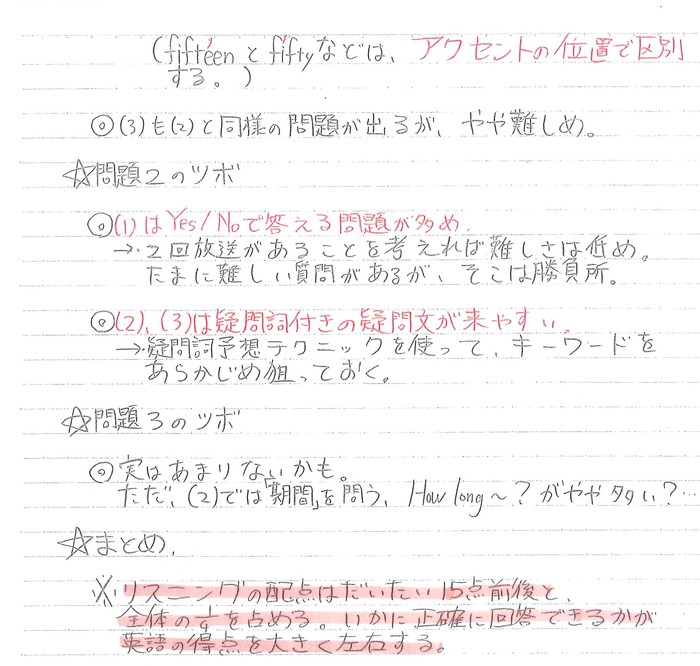 (fifteenとfiftyなどは、アクセントの位置で区別
する。)
◎(3)も(2)と同様の問題が出るが、やや難しめ。
☆問題2のツボ
◎(1)はYes/Noで答える問題が多め。
→・2回放送があることを考えれば難しさは低め。
たまに難しい質問があるが、そこは勝負所。
◎(2)、(3)は疑問詞付きの疑問文が来やすい。
→・疑問詞予想テクニックを使って、キーワードを
あらかじめ狙っておく。
☆問題3のツボ
◎実はあまりないかも。
ただ、(2)では「期間」を問う、How long〜?がやや多い?…
☆まとめ.
※リスニングの配点はだいたい15点前後と、
全体の1/4を占める。いかに正確に回答できるかが
英語の得点を大きく左右する。